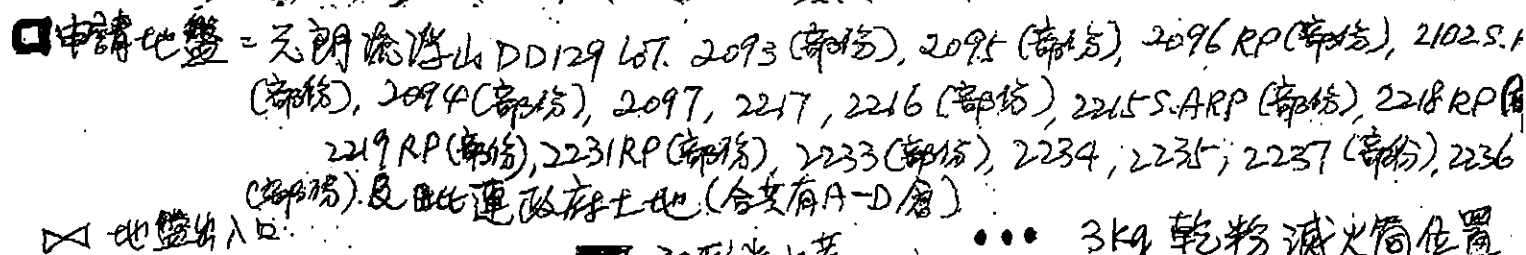 申請地盤 = 元朗流浮山 DD129 LOT. 2093 (部份), 2095 (部份), 2096 RP (部份), 2102 S.A
(部份), 2094 (部份), 2097, 2217, 2216 (部份), 2215 S.ARP (部份), 2218 RP
2219 RP (部份), 2231 RP (部份), 2233 (部份), 2234, 2235, 2237 (部份), 2236
(部份) 及毗連政府土地 (合共有A-D倉)
地盤出入口
••• 3kg 乾粉滅火筒位置